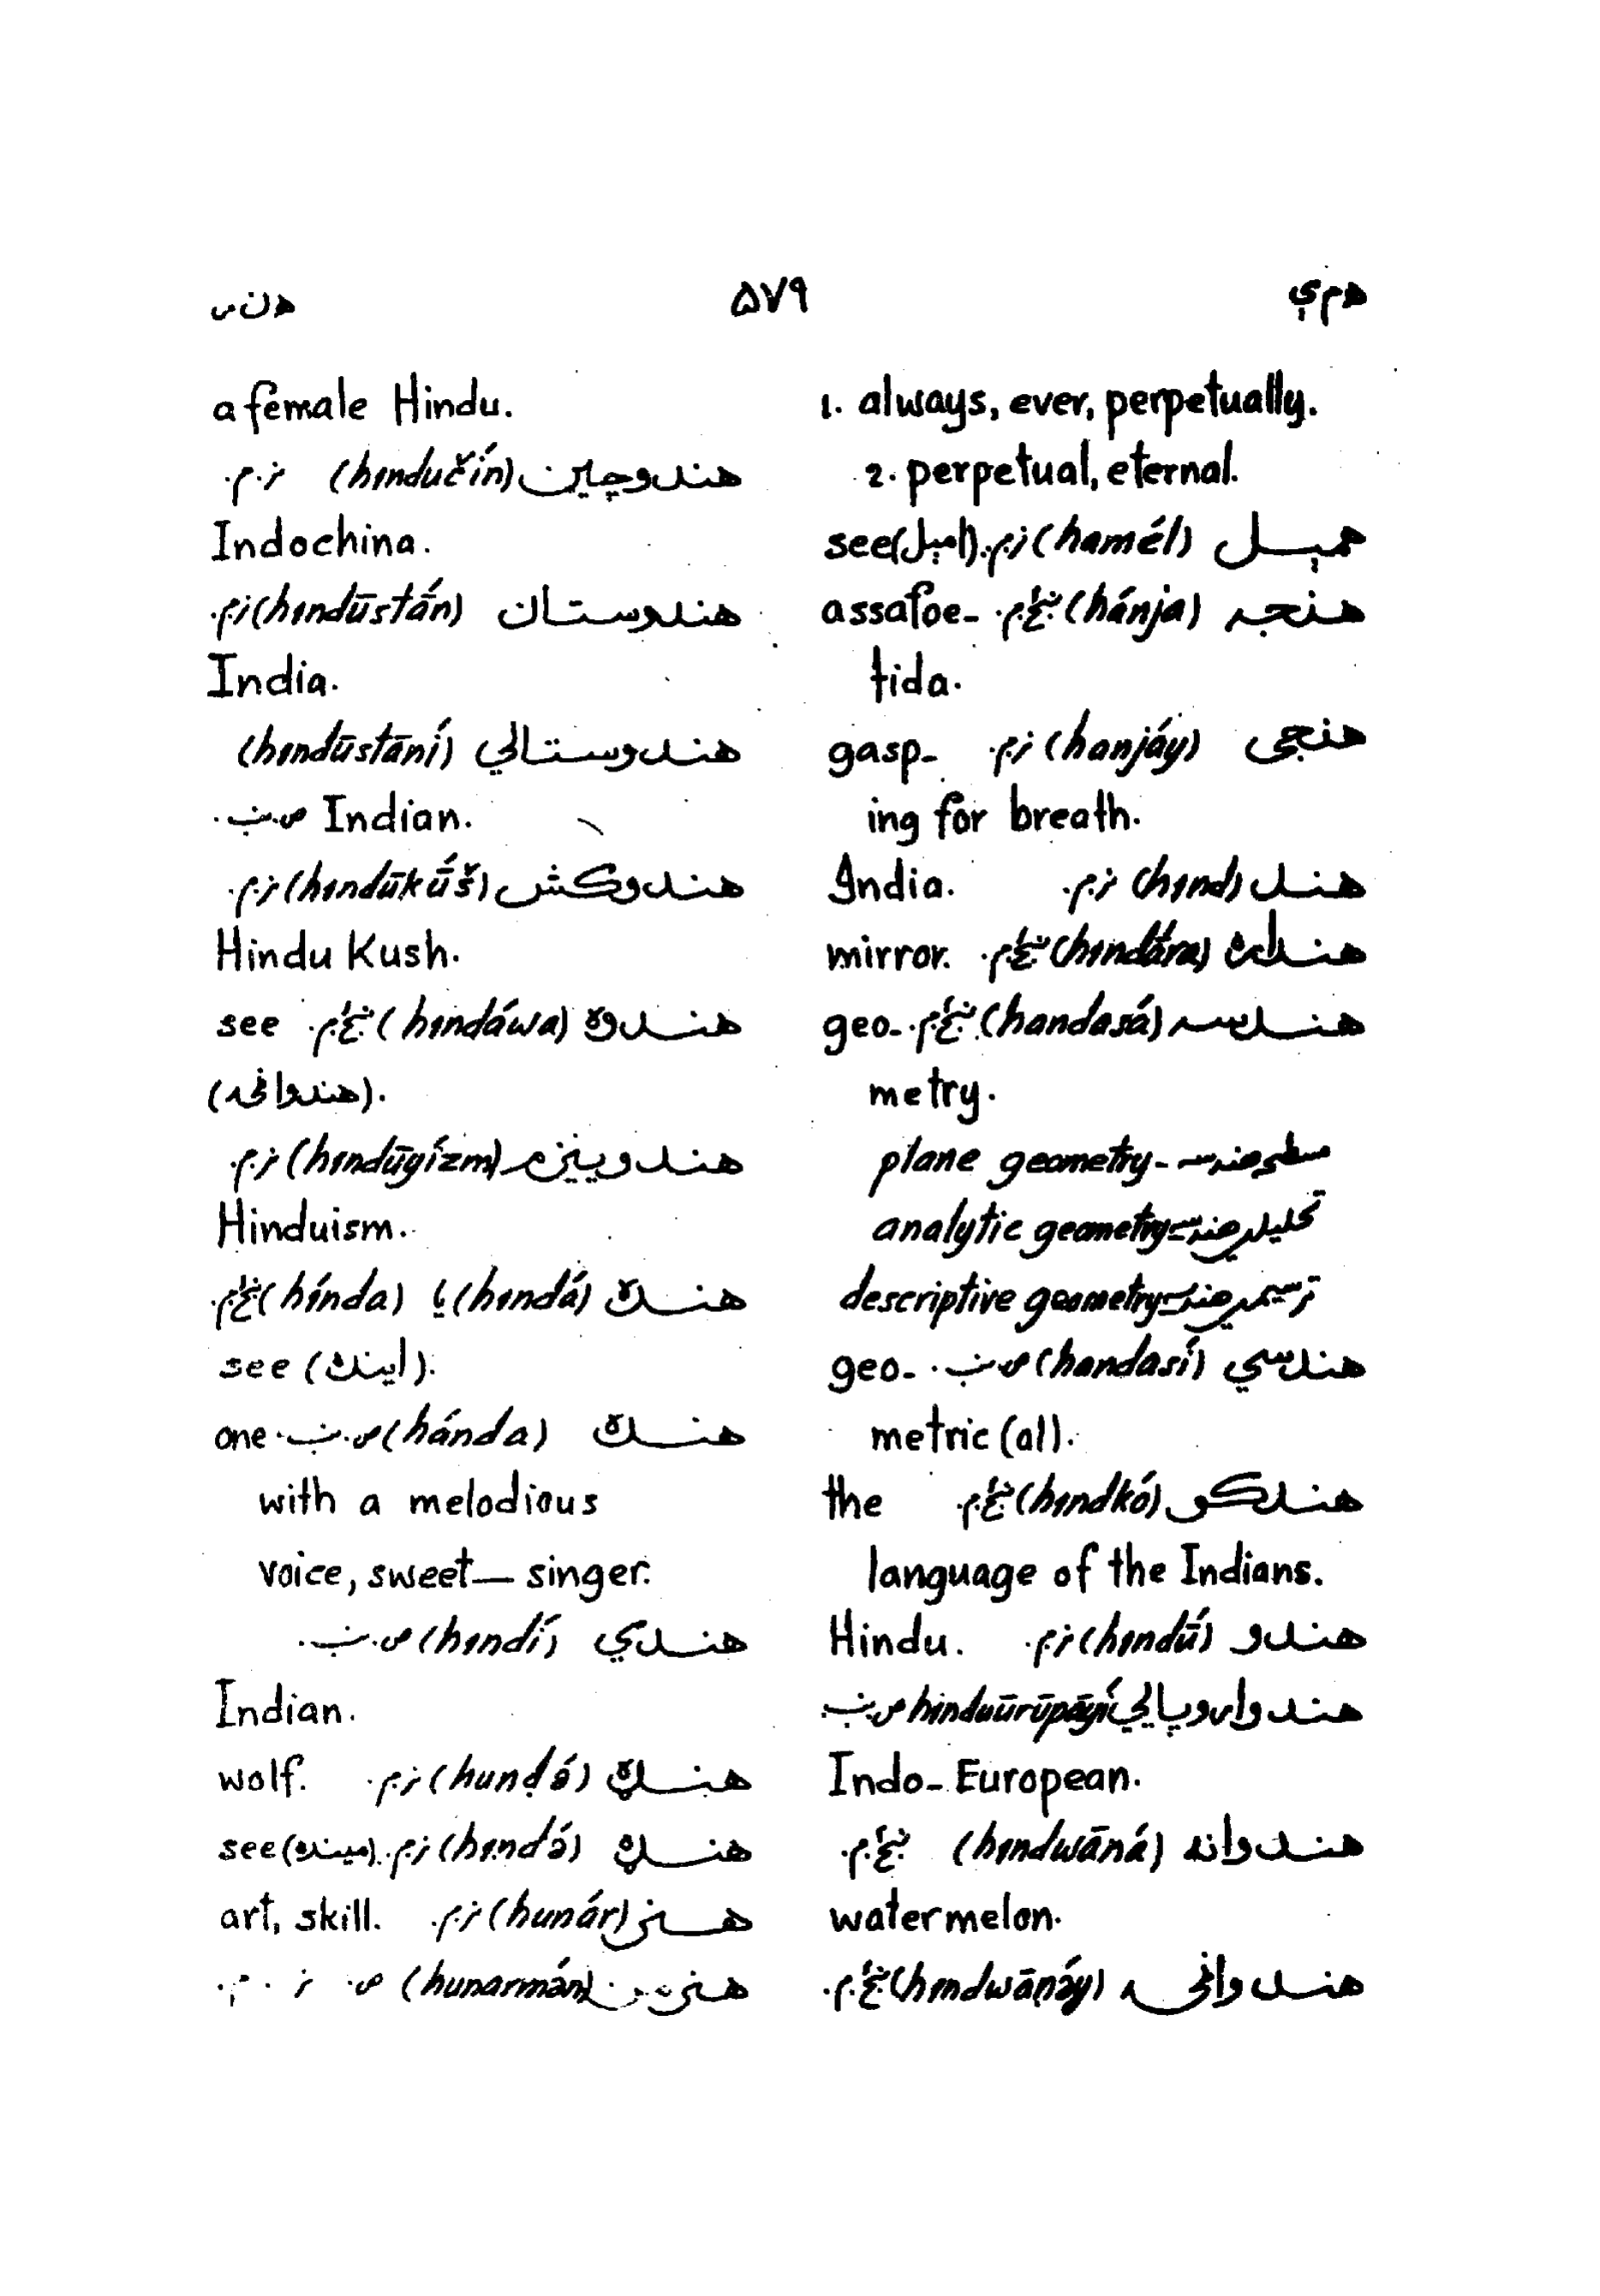 همېـ ۵۷۹ هنـ
1. always, ever, perpetually.
2. perpetual, eternal.
همېل (hamél) نر.م. see(امېل).
هنجه (hánja) ښځ.م. assafoe-
tida.
هنجی (hanjáy) نر.م. gasp-
ing for breath.
هند (hınd) نر.م. India.
هنداره (hındā́ra) ښځ.م. mirror.
هندسه (handasá) ښځ.م. geo-
metry.
مسطح هندسه - plane geometry
تحلیلي هندسه - analytic geometry
ترسیمي هندسه - descriptive geometry
هندسي (handasí) ص.ن. geo-
metric (al).
هندکو (hındkó) ښځ.م. the
language of the Indians.
هندو (hındū́) نر.م. Hindu.
هندواروپايي hınduūrūpāyí ص.ن.
Indo-European.
هندوانه (hındwāná) ښځ.م.
watermelon.
هندواڼۍ (hındwāṇə́y) ښځ.م.
a female Hindu.
هندوچین (hındučín) نر.م.
Indochina.
هندوستان (hındūstā́n) نر.م.
India.
هندوستاني (hındūstāní)
ص.ن. Indian.
هندوکش (hındūkū́š) نر.م.
Hindu Kush.
هندوه (hındáwa) ښځ.م. see
(هندواڼه).
هندوییزم (hındūyízm) نر.م.
Hinduism.
هنده (hındá) یا (hínda) ښځ.م.
see (اینده).
هنده (hánda) ص.ن. one
with a melodious
voice, sweet— singer.
هندي (hındí) ص.ن.
Indian.
هنډه (hunḍə́) نر.م. wolf.
هنډه (hınḍə́) نر.م. see (مینده).
هنر (hunár) نر.م. art, skill.
هنرمن (hunarmán) ص. نر. م.